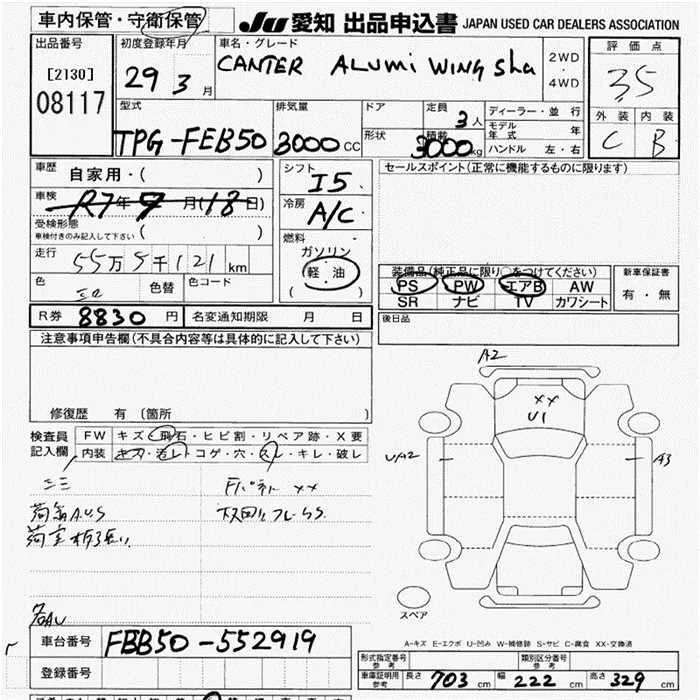 車内保管・守衛保管
JU 愛知 出品申込書 JAPAN USED CAR DEALERS ASSOCIATION
出品番号
[2130]
08117
初度登録年月
29 3月
車名・グレード
CANTER ALUMi WING Sha
2WD
・
4WD
評価点
3.5
外装 内装
C B
型式
TPG-FEB50
排気量
3000CC
ドア
形状
定員
3人
積載
3000kg
ディーラー・並行
モデル年式 年
ハンドル 左・右
車歴
自家用・( )
車検
R7年9月(18日)
受検形態
車検付きのみ記入して下さい ( )
走行
55万5千121km
色 色替 色コード
シフト
I5
冷房
A/C
燃料
ガソリン
軽油
( )
セールスポイント(正常に機能するものに限ります)
装備品(純正品に限り○をつけてください)
PS PW エアB AW
SR ナビ TV カワシート
新車保証書
有・無
R券 8830円 名変通知期限 月 日
後日品
注意事項申告欄(不具合内容等は具体的に記入して下さい)
修復歴 有 (箇所 )
検査員
記入欄
FW キズ・飛石・ヒビ割・リペア跡・X要
内装 キズ・汚レ・コゲ・穴・スレ・キレ・破レ
Fパネル XX
A2
XX
U1
U/A2
A3
スペア
A-キズ E-エクボ U-凹み W-補修跡 S-サビ C-腐食 XX-交換済
車台番号 FEB50-552919
登録番号
形式指定番号
参考
類別区分番号
参考
車庫証明用
参考
長さ 703cm 幅 222cm 高さ 329cm